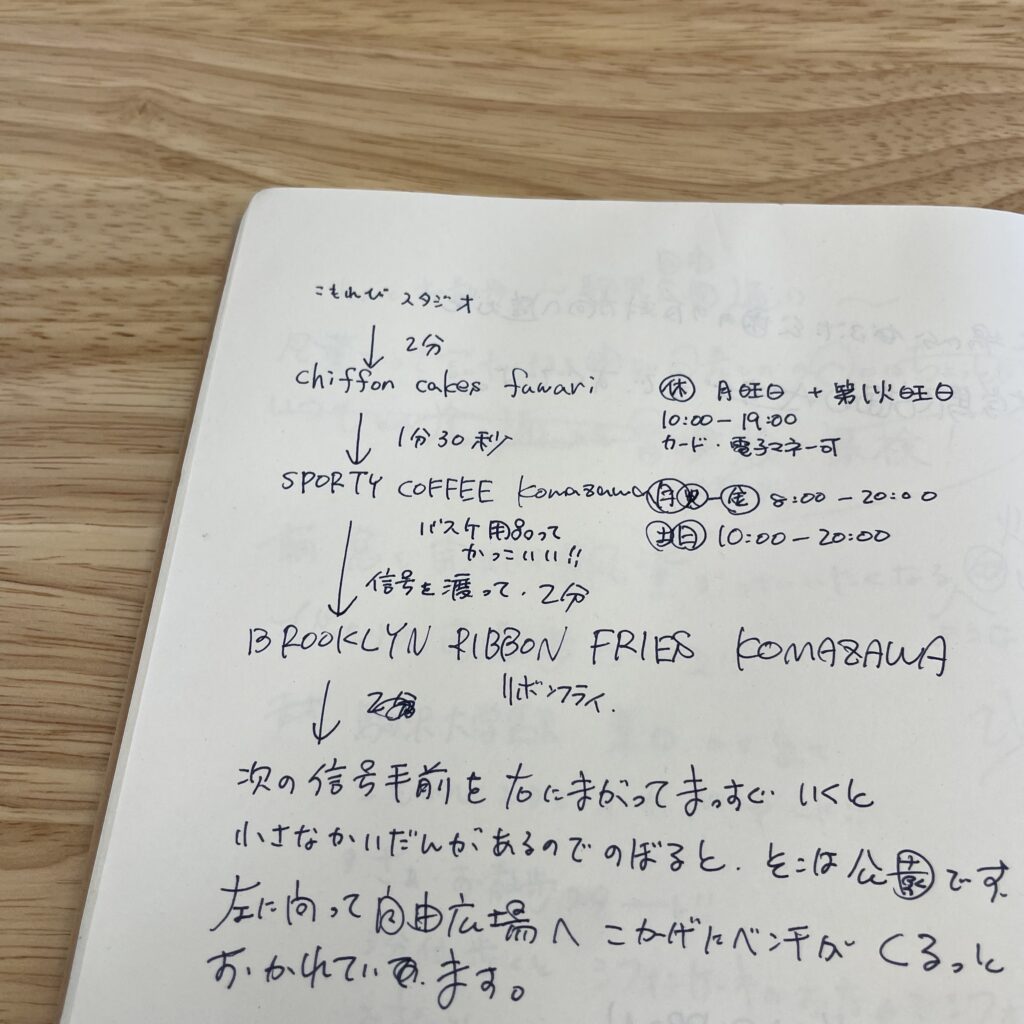 こもれび スタジオ
↓ 2分
chiffon cakes fuwari
㊡ 月曜日 + 第1火曜日
10:00-19:00
カード・電子マネー可
↓ 1分30秒
SPORTY COFFEE Komazawa
8:00-20:00
土日 10:00-20:00
バスケ用品って
かっこいい!!
↓ 信号を渡って、2分
BROOKLYN RIBBON FRIES KOMAZAWA
リボンフライ.
↓
次の信号手前を右にまがってまっすぐいくと
小さなかいだんがあるのでのぼると、そこは公園です。
左に向って自由広場へ こかげにベンチがくるっと
おかれています。